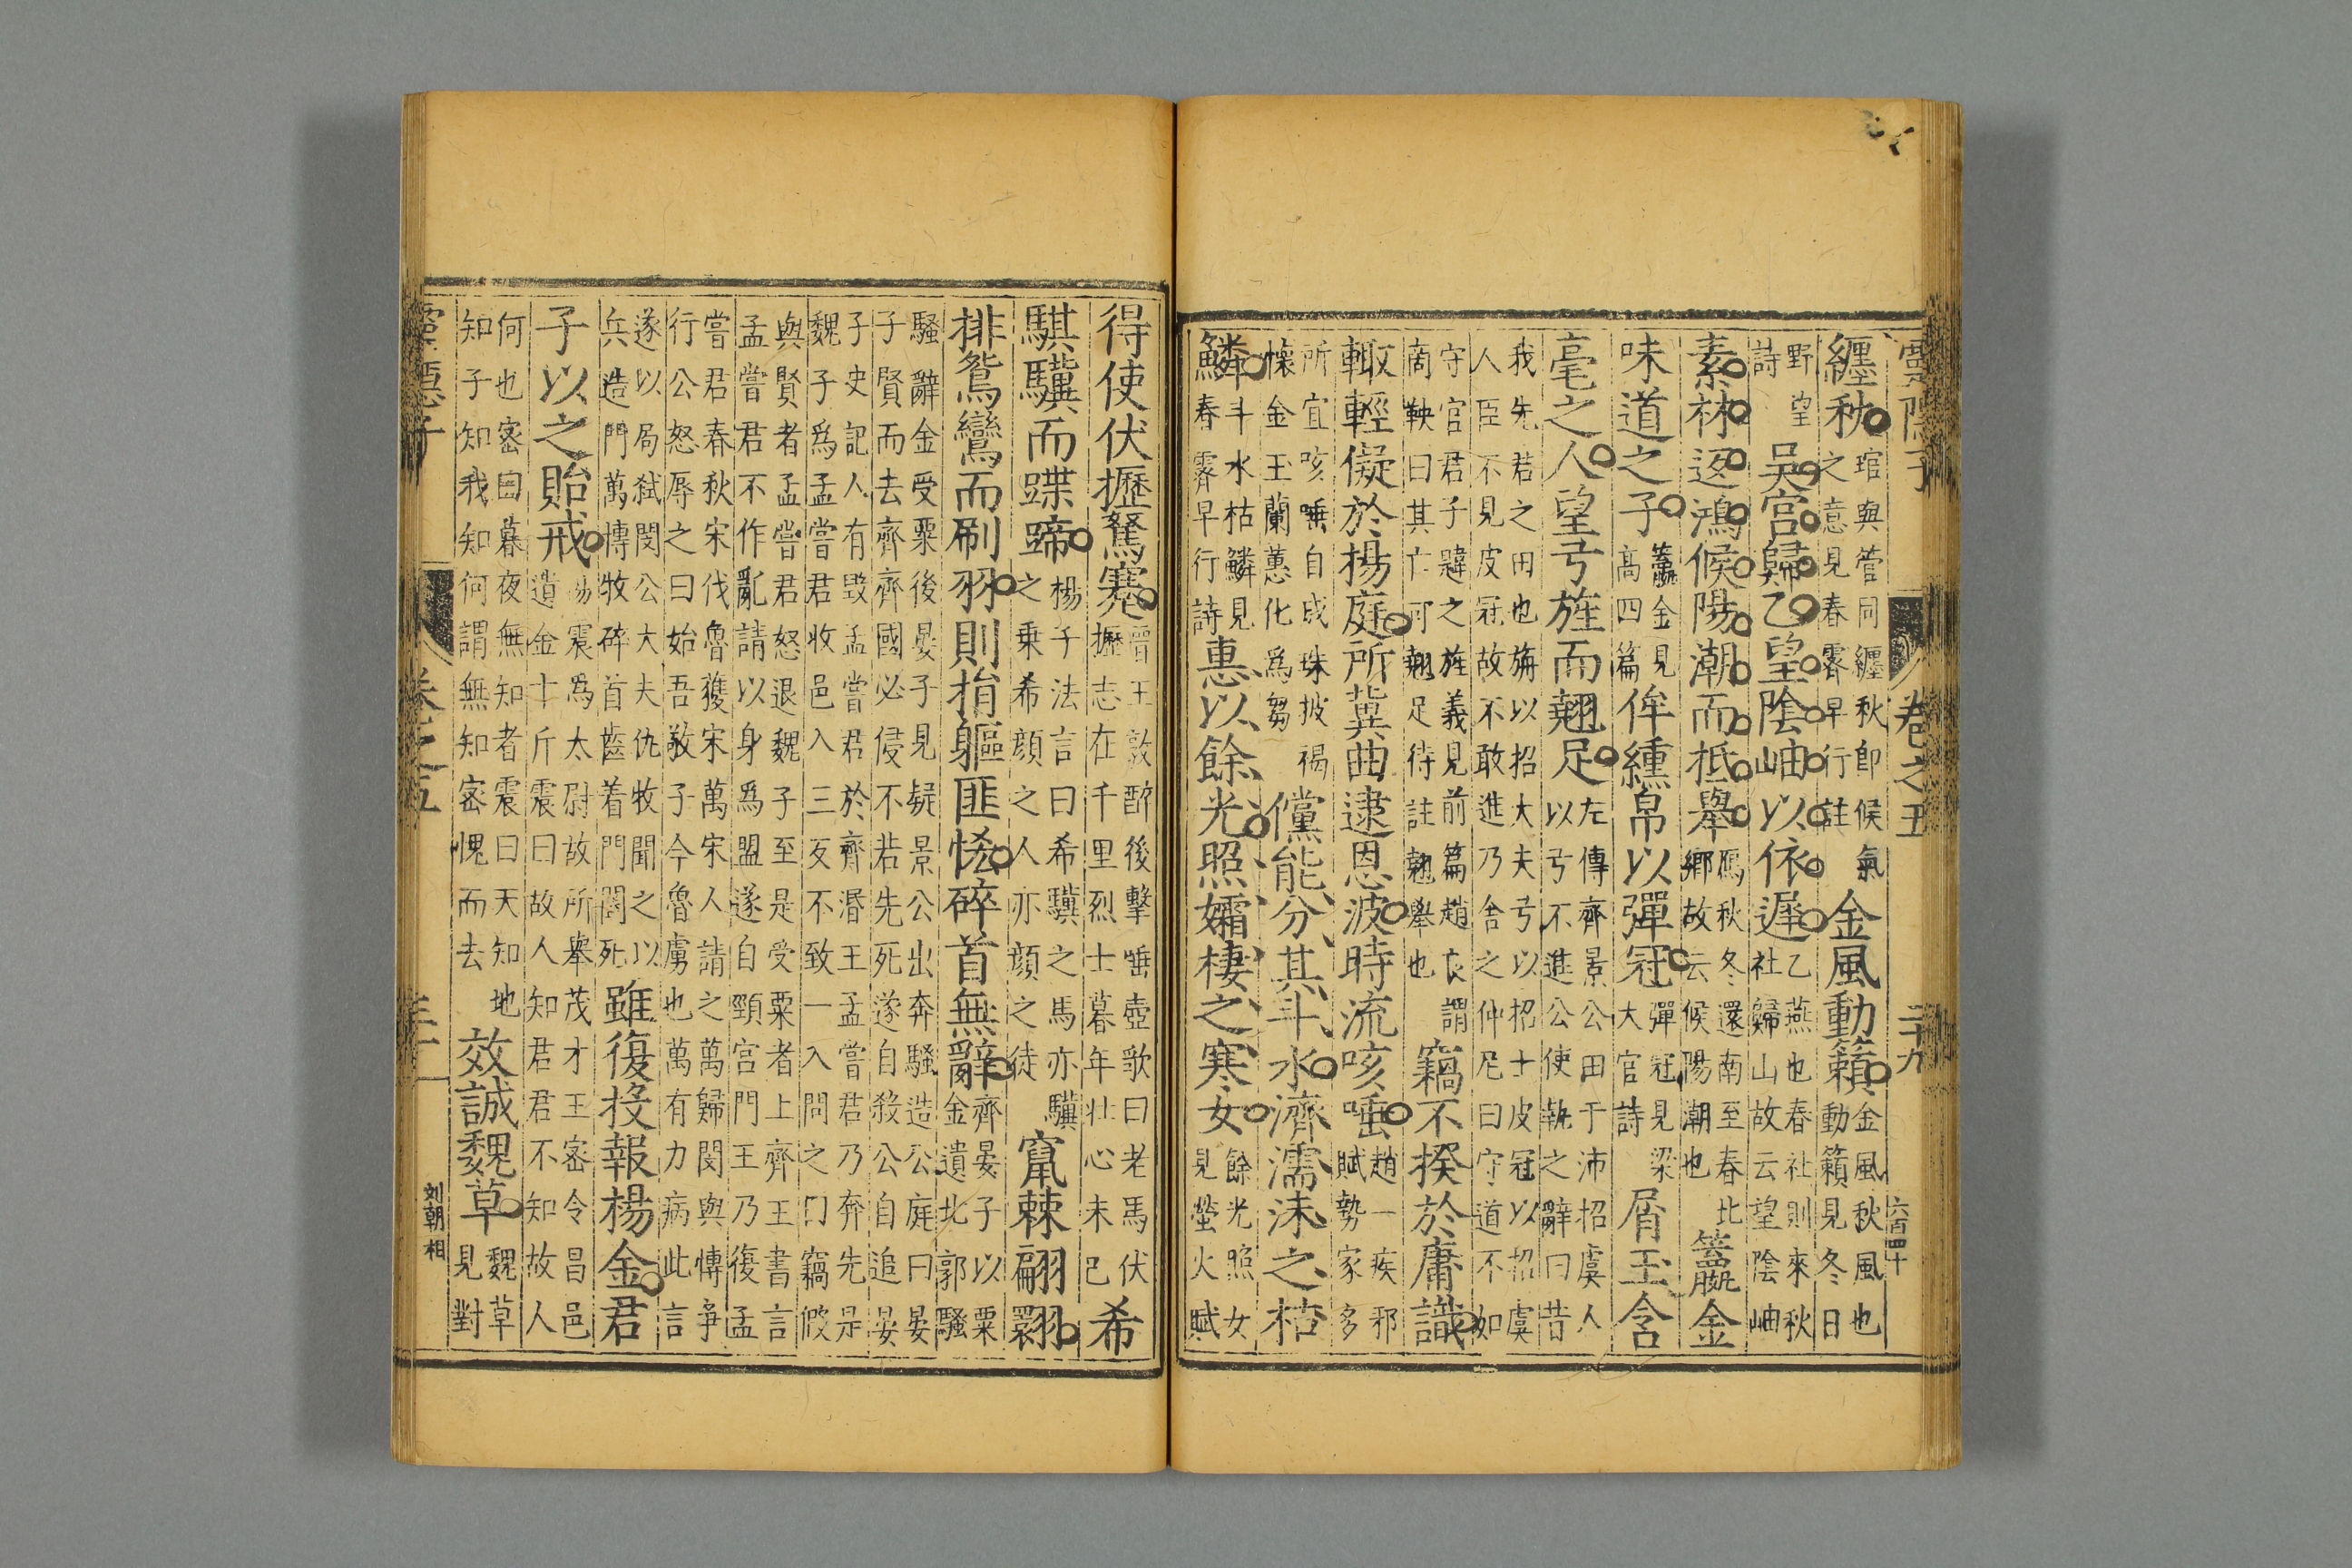 卷之五
二十九
六百四十
纏秋琯與管同纏秋即候氣之意見春霽早行註金風動籟金風秋風也動籟見冬日
野望詩吳宮歸乙望陰岫以依遲乙燕也春社則來秋社歸山故云望陰岫
素林返鴻候陽潮而抵舉鴈秋冬還南至春北鄉故云候陽潮也籯金
味道之子籯金見高四篇侔纁帛以彈冠彈冠見梁大官詩屑玉含
毫之人望弓旌而翹足左傳齊景公田于沛招虞人以弓不進公使執之辭曰昔
我先君之田也旃以招大夫弓以招士皮冠以招虞人臣不見皮冠故不敢進乃舍之仲尼曰守道不如
守官君子韙之旌義見前篇趙良謂商鞅曰其亡可翹足待註翹舉也竊不揆於庸識
輙輕儗於揚庭所冀曲逮恩波時流咳唾趙一疾邪賦勢家多
所宜咳唾自成珠披褐懷金玉蘭蕙化爲芻儻能分其斗水濟濡沫之枯
鱗斗水枯鱗見春霽早行詩惠以餘光照孀棲之寒女餘光照女見螢火賦
得使伏攊駑蹇晉王敦醉後擊唾壺歌曰老馬伏攊志在千里烈士暮年壯心未已希
騏驥而蹀蹄楊子法言曰希驥之馬亦驥之乗希顔之人亦顔之徒竄棘翩翾
排鴛鸞而刷羽則捐軀匪悋碎首無辭齊晏子以粟金遺北郭騷
騷辭金受粟後晏子見疑景公出奔騷造公庭曰晏子賢而去齊齊國必侵不若先死遂自殺公自追晏
子史記人有毀孟嘗君於齊湣王孟嘗君乃奔先是魏子爲孟嘗君收邑入三反不致一入問之曰竊假
與賢者孟嘗君怒退魏子至是受粟者上齊王書言孟嘗君不作亂請以身爲盟遂自頸宮門王乃復孟
嘗君春秋宋伐魯獲宋萬宋人請之萬歸閔與慱爭行公怒辱之曰始吾敬子今魯虜也萬有力病此言
遂以局弑閔公大夫仇牧聞之以兵造門萬慱牧碎首齒着門闔死雖復投報楊金君
子以之貽戒楊震爲太尉故所舉茂才王密令昌邑遺金十斤震曰故人知君君不知故人
何也密曰暮夜無知者震曰天知地知子知我知何謂無知密愧而去效誠魏草魏草見對
卷之五
三十
刘朝相